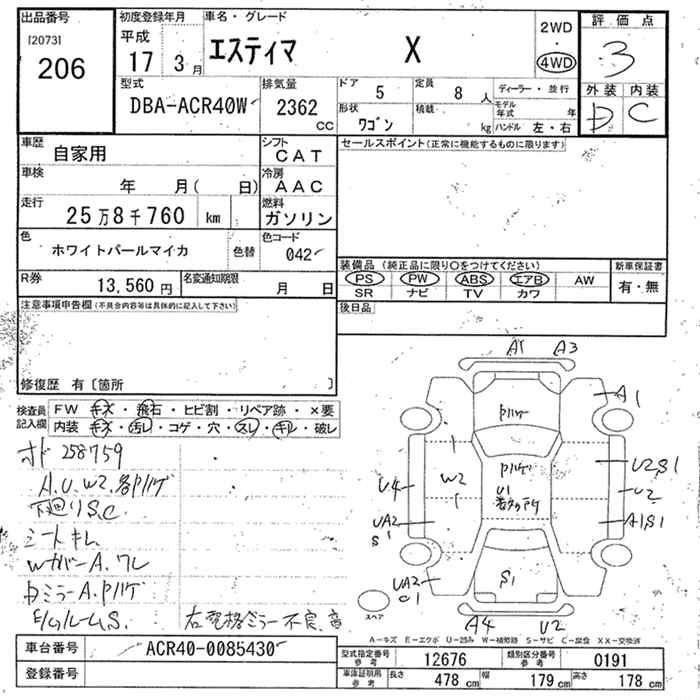 出品番号
[2073]
206
初度登録年月
平成
17 3月
車名・グレード
エスティマ X
2WD
・
4WD
評価点
3
外装 内装
D C
型式
DBA-ACR40W
排気量
2362 cc
ドア 5
定員 8 人
形状 ワゴン
積載 kg
ディーラー・並行
モデル年式 年
ハンドル 左・右
車歴
自家用
シフト
CAT
車検
年 月( 日)
冷房
AAC
走行
25万8千760 km
燃料
ガソリン
色
ホワイトパールマイカ
色替
色コード
042
R券
13,560円
名変通知期限
月 日
セールスポイント(正常に機能するものに限ります)
装備品(純正品に限り○をつけてください)
PS PW ABS エアB AW
SR ナビ TV カワ
新車保証書
有・無
後日品
注意事項申告欄(不具合内容等は具体的に記入して下さい)
修復歴 有〔箇所 〕
検査員記入欄
FW キズ・飛石・ヒビ割・リペア跡・×要
内装 キズ・汚レ・コゲ・穴・スレ・キレ・破レ
オド 258759
A.U.W2.各Pハゲ
下回りS.C
シートキレ
Wカバー A.ワレ
Dミラー A.Pハゲ
E/gルームS.
右電格ミラー不良
A1 A3
A1
Pハゲ
Pハゲ
U1
W2
U4
U2S1
U2
UA2
S1
A1S1
UA2
C1
S1
A4 U2
スペア
A-キズ E-エクボ U-凹み W-補修跡 S-サビ C-腐食 XX-交換済
車台番号
ACR40-0085430
登録番号
型式指定番号 参考
12676
類別区分番号 参考
0191
車庫証明用 参考
長さ 478 cm
幅 179 cm
高さ 178 cm